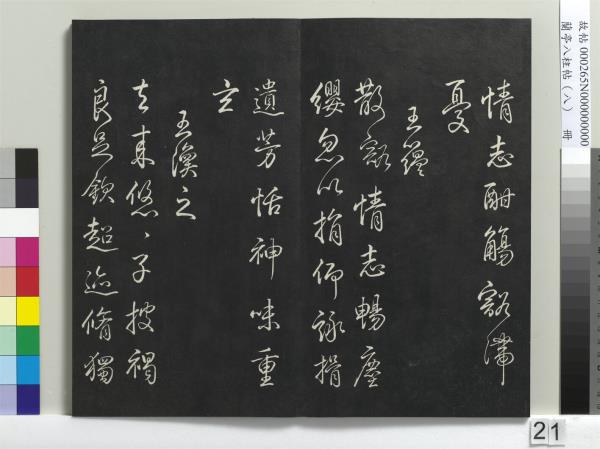 情志酣觴豁滯
憂
王蘊
散豁情志暢塵
纓忽以捐仰詠挹
遺芳恬神味重
玄
王渙之
去来悠〻子披褐
良足欽超迹脩獨
故帖 000265N000000000
蘭亭八柱帖(八) 冊
21